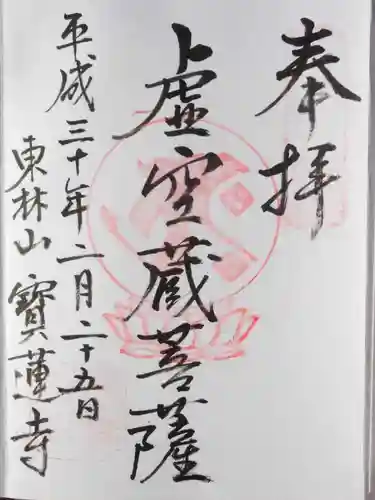 奉拝
虚空蔵菩薩
平成三十年二月二十五日
東林山寳蓮寺